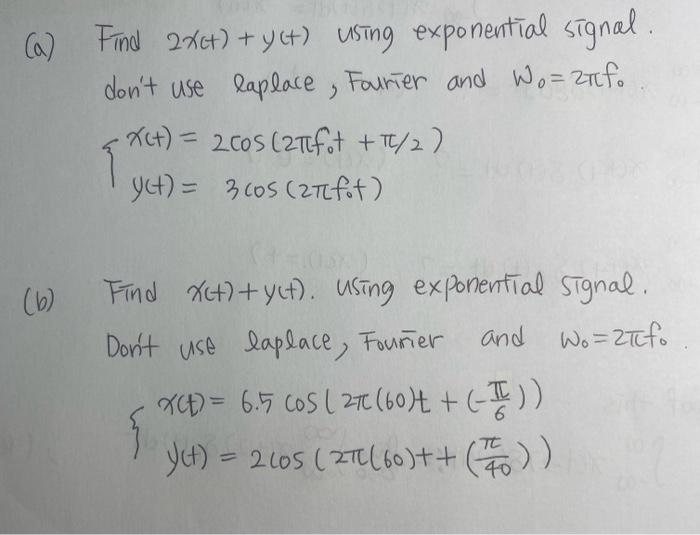 (a) Find 2x(t) + y(t) using exponential signal.
don't use laplace, Fourier and W₀ = 2πf₀.
x(t) = 2cos(2πf₀t + π/2)
y(t) = 3cos(2πf₀t)
(b) Find x(t)+y(t). using exponential signal.
Don't use laplace, Fourier and W₀=2πf₀.
x(t) = 6.5 cos(2π(60)t + (-π/6))
y(t) = 2cos(2π(60)t + (π/40))